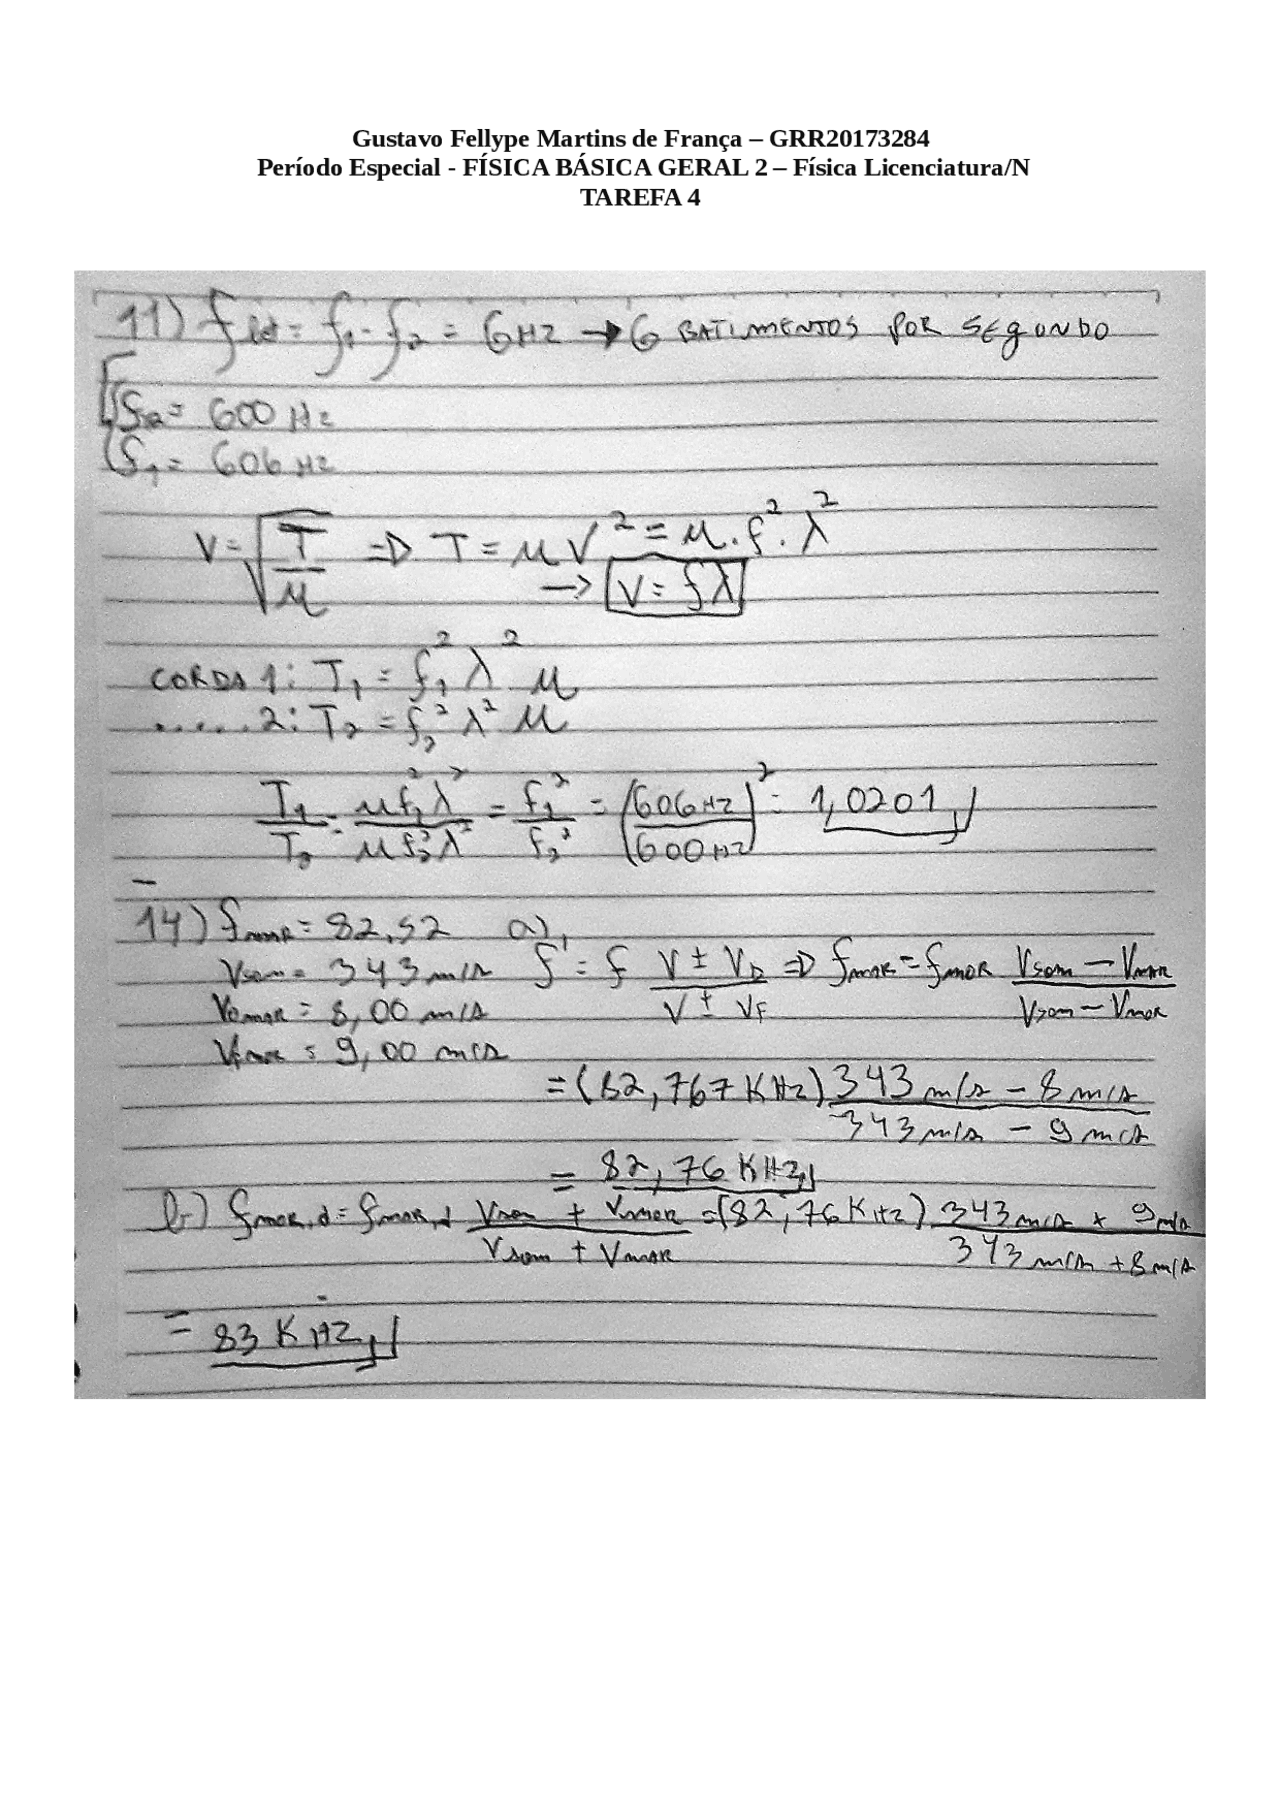 Gustavo Fellype Martins de França – GRR20173284
Período Especial - FÍSICA BÁSICA GERAL 2 – Física Licenciatura/N
TAREFA 4
11) f bat = f₁ - f₂ = 6 Hz → 6 BATIMENTOS POR SEGUNDO
f₂ = 600 Hz
f₁ = 606 Hz
V = √(T/μ) ⇒ T = μV² = μ.f².λ²
→ V = fλ
CORDA 1: T₁ = f₁² λ² μ
..... 2: T₂ = f₂² λ² μ
T₁/T₂ = μf₁²λ²/μf₂²λ² = f₁²/f₂² = (606 Hz/600 Hz)² = 1,0201
14) f = 82,52 a)
Vsom = 343 m/s f' = f (V ± VD)/(V ± VF) ⇒ fmor = fmor (Vsom – Vmor)/(Vsom – Vmor)
VDmor = 8,00 m/s
VFmor = 9,00 m/s
= (82,767 KHz) (343 m/s – 8 m/s)/(343 m/s – 9 m/s)
= 82,76 KHz
b) fmor,d = fmor,d (Vsom + Vmor)/(Vsom + Vmor) = (82,76 KHz) (343 m/s + 9 m/s)/(343 m/s + 8 m/s)
= 83 KHz